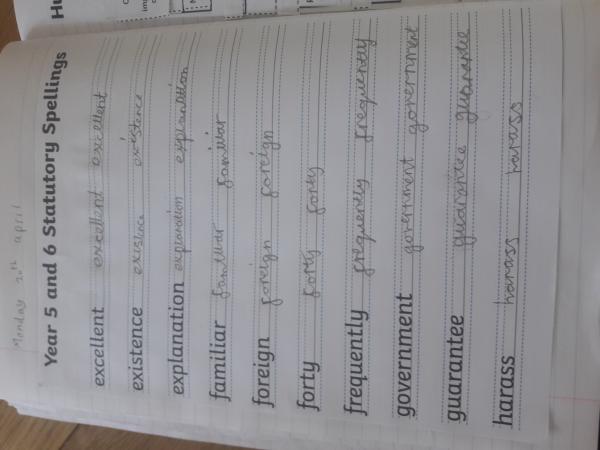 Monday 20th april
Year 5 and 6 Statutory Spellings
excellent excellent excellent
existence existence existence
explanation explanation explanation
familiar familiar familiar
foreign foreign foreign
forty forty forty
frequently frequently frequently
government government government
guarantee guarantee guarantee
harass harass harass